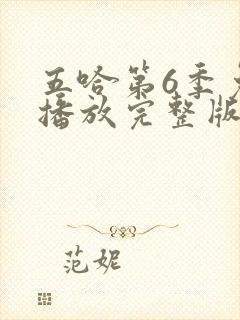 五哈第6季
播放完整版
范妮